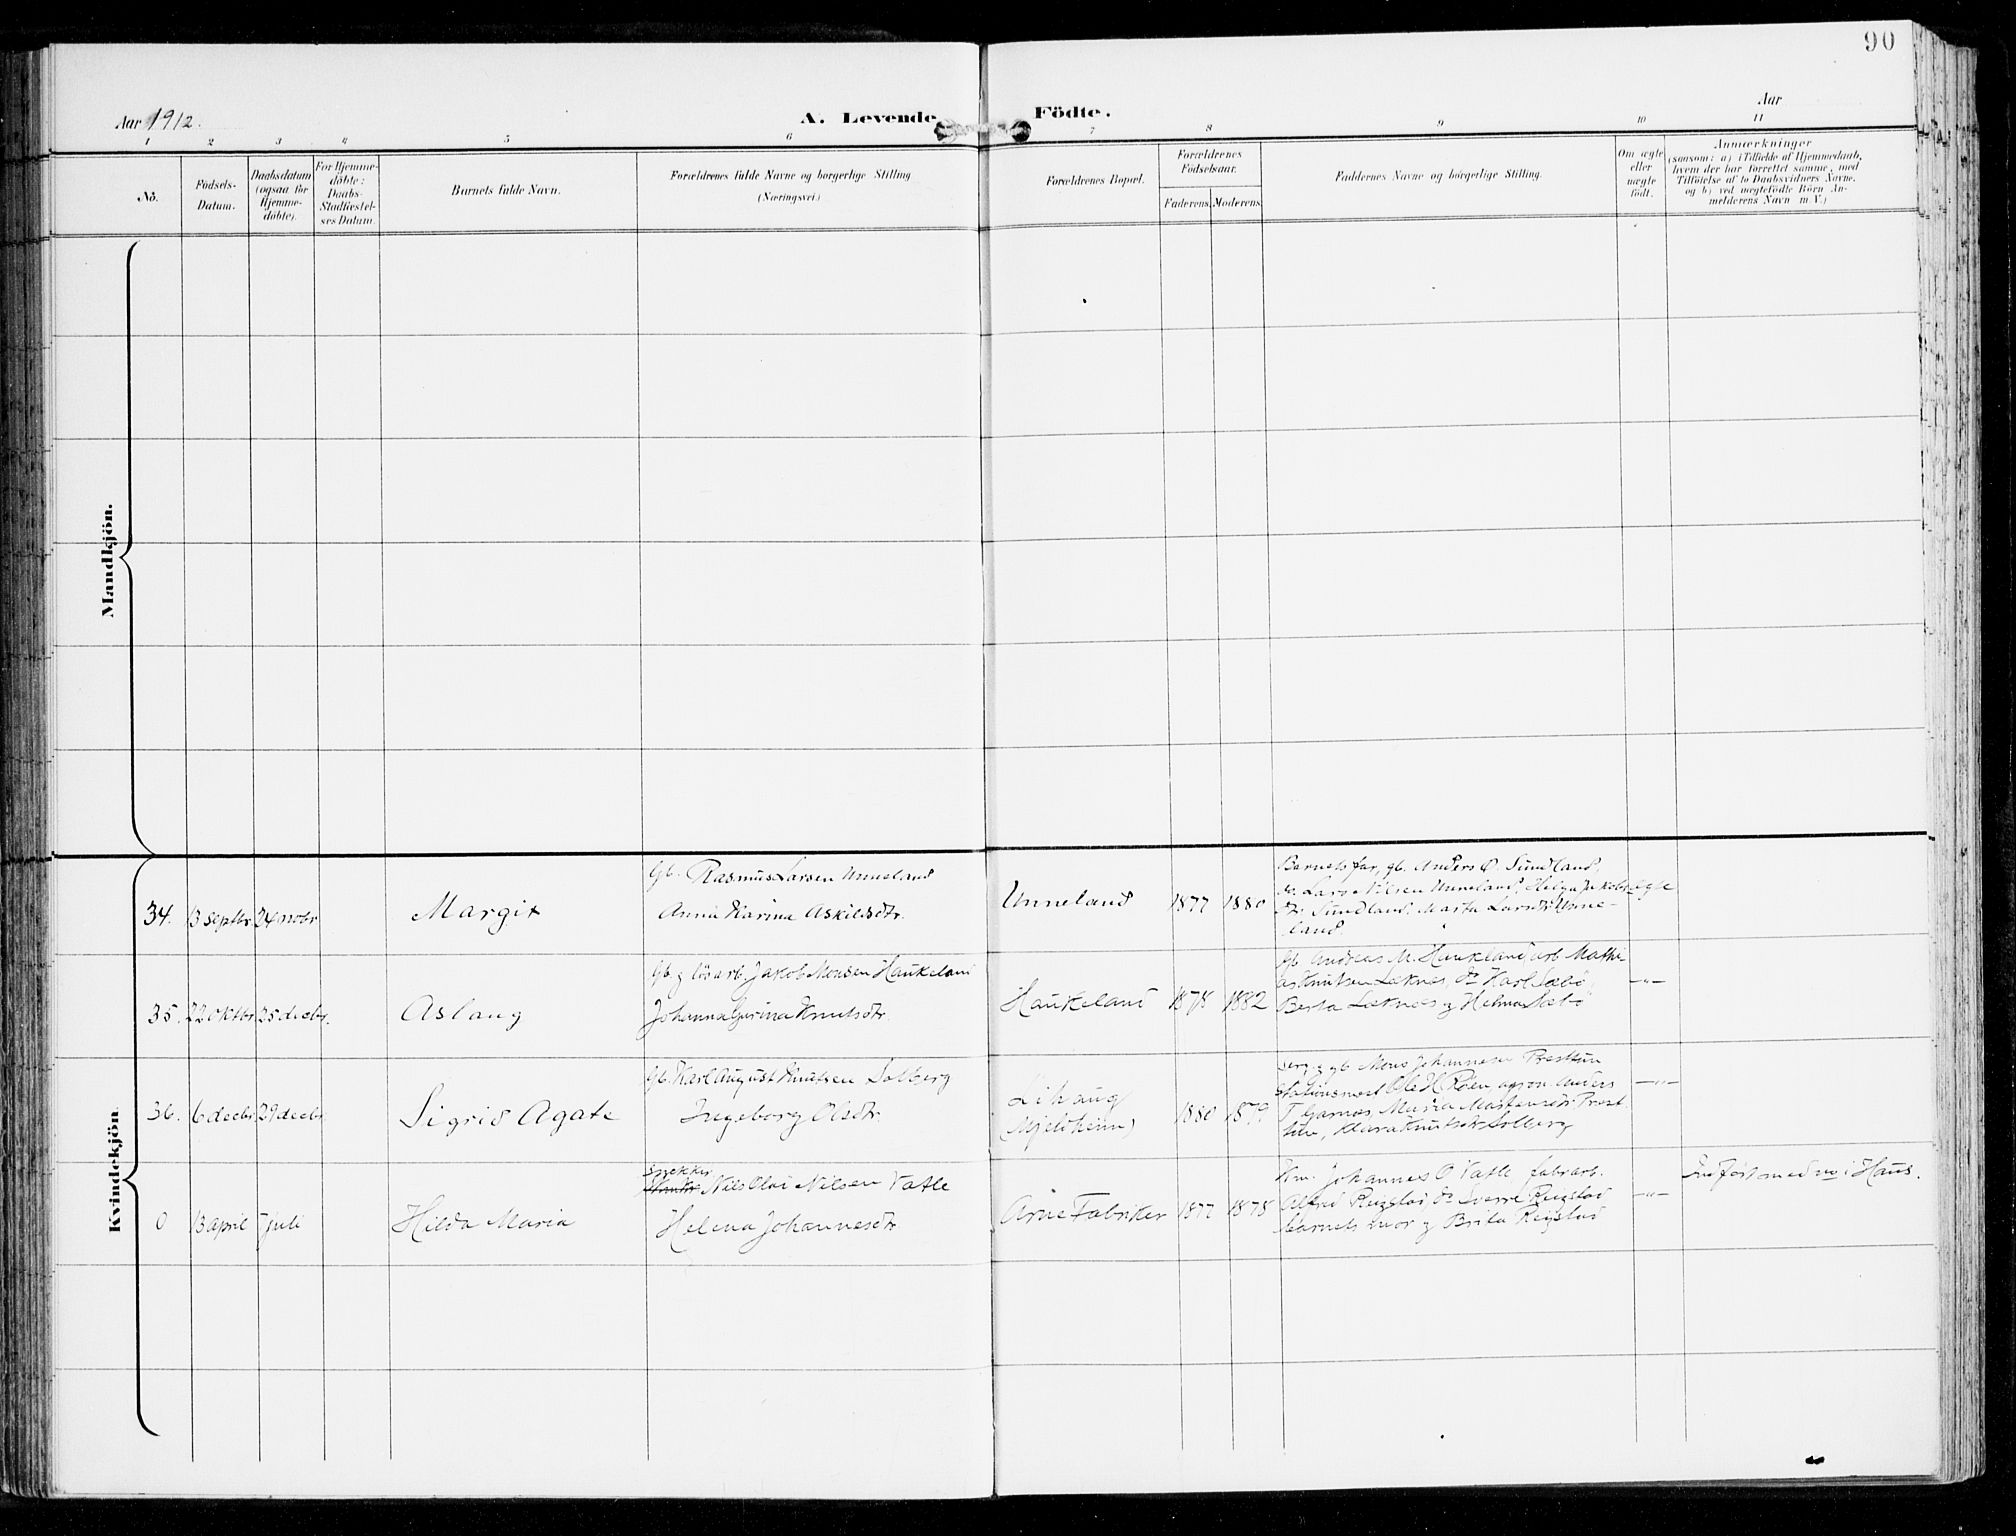 90
Aar 1912.
A. Levende
Födte.
Aar
1 2 3 4 5 6 7 8 9 10 11
No.
Födsels-
Datum.
Daabsdatum
(ogsaa for
Hjemme-
döbte).
For Hjemme-
döbte:
Daabs-
Stadfæstel-
ses Datum.
Barnets fulde Navn.
Forældrenes fulde Navne og borgerlige Stilling
(Næringsvei.)
Forældrenes Bopæl.
Forældrenes
Födselsaar.
Faderens. Moderens.
Faddernes Navne og borgerlige Stilling.
Om ægte
eller
uægte
födt.
Anmærkninger
(saasom: a) i Tilfælde af Hjemmedaab,
hvem der har forrettet samme, med
Tilföielse af to Daabsvidners Navne.
og b) ved uægtefödte Börn An-
melderens Navn m V.)
Mandkjön.
Kvindekjön.
34. 13 septbr. 24 nobr
Margit
Gb. Rasmus Larsen Unneland
Anna Karina Askildsdtr.
Unneland
1877 1880
Barnets far, gb. Anders O. Sundland,
Lars Nilsen Unneland, Helga Jakobs-
dtr. Sundland, Marta Larsdtr Unne-
land.
ægte
35. 22 oktbr. 25 decbr.
Aslaug
Gb. g løsarb. Jakob Monsen Haukeland
Johanna Gurina Knutsdtr.
Haukeland
1878 1882
Gb Andreas M. Haukeland arb Mathi-
as Knutsen Løknes, do Karl Sæbø,
Berta Løknes og Helma Sæbø
—"—
36. 6 decbr. 29 decbr
Sigrid Agate
Gb. Karl August Knutsen Solberg
Ingeborg Olsdtr.
Likaug
(Mjeldheim)
1880 1879
gb Mons Johannesen Presttun
Stationsmest Ole H Røen, agron. Anders
T Garnes, Maria Prest
tun, Klara Knutsdtr Solberg
—"—
0 13 april 7 juli
Hilda Maria
Snekker
Nils Olai Nilsen Vatle
Helena Johannesdtr.
Arne Fabriker
1877 1878
Km. Johannes O Vatle fabrarb.
Alfred Reigstad, do Sverre Reigstad
barnets mor g Brita Reigstad
—"—
Indført med no i Haus.